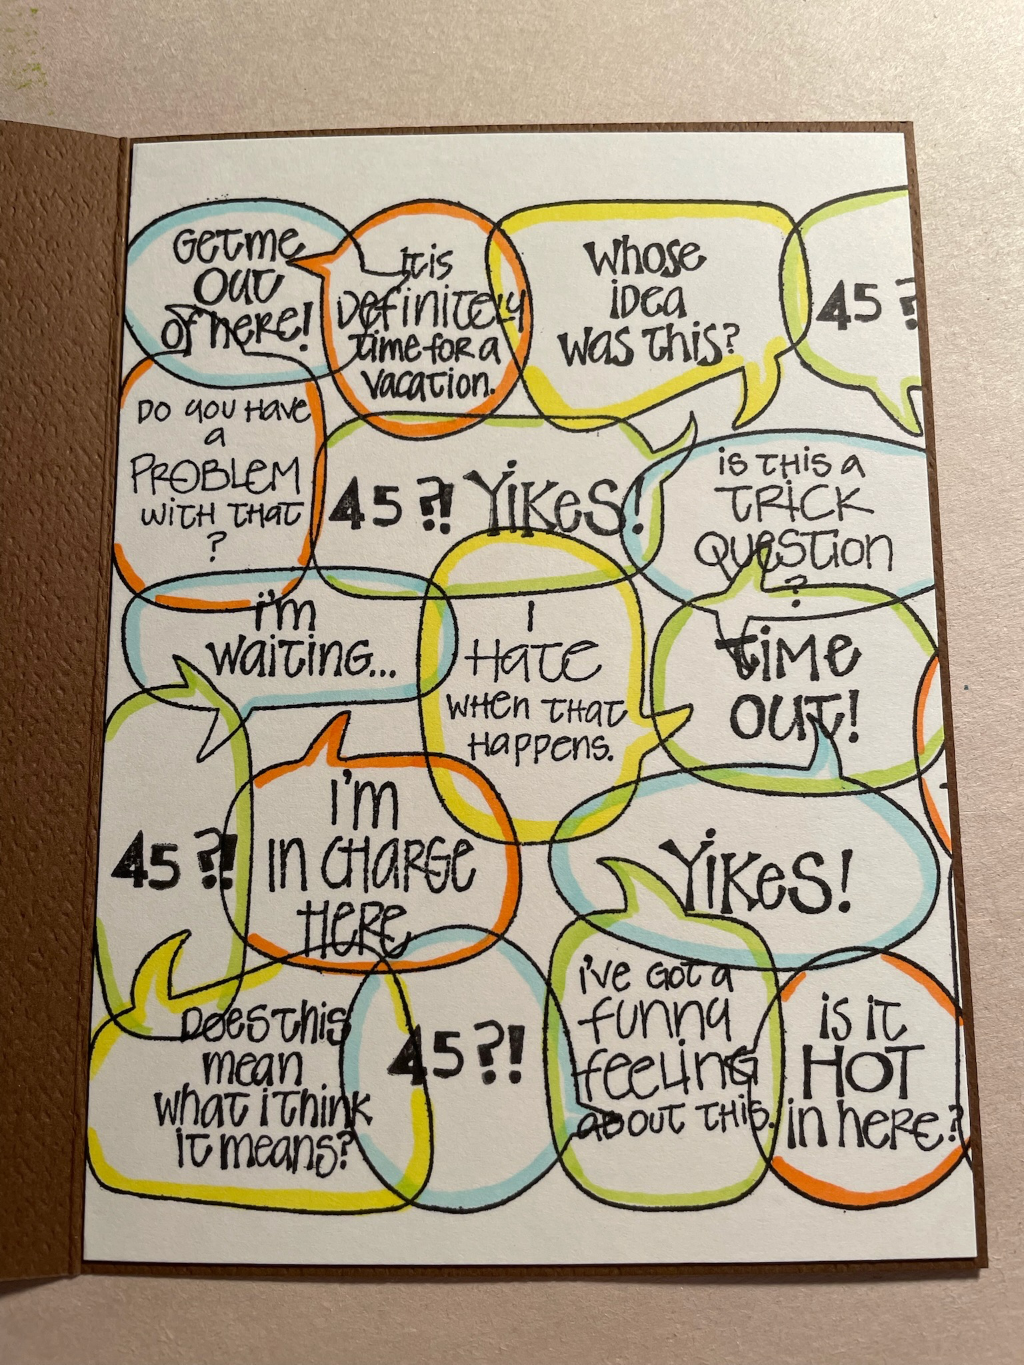 Get me
out
of here!
It is
Definitely
time for a
vacation.
Whose
idea
was this?
45 ?
Do you have
a
PROBLEM
with that
?
45 ?! Yikes!
is this a
TRICK
Question
?
i'm
waiting...
I
Hate
when that
happens.
time
out!
45 ?!
I'm
in charge
Here
Yikes!
Does this
mean
what i think
it means?
45 ?!
i've got a
funny
feeling
about this.
is it
HOT
in here?